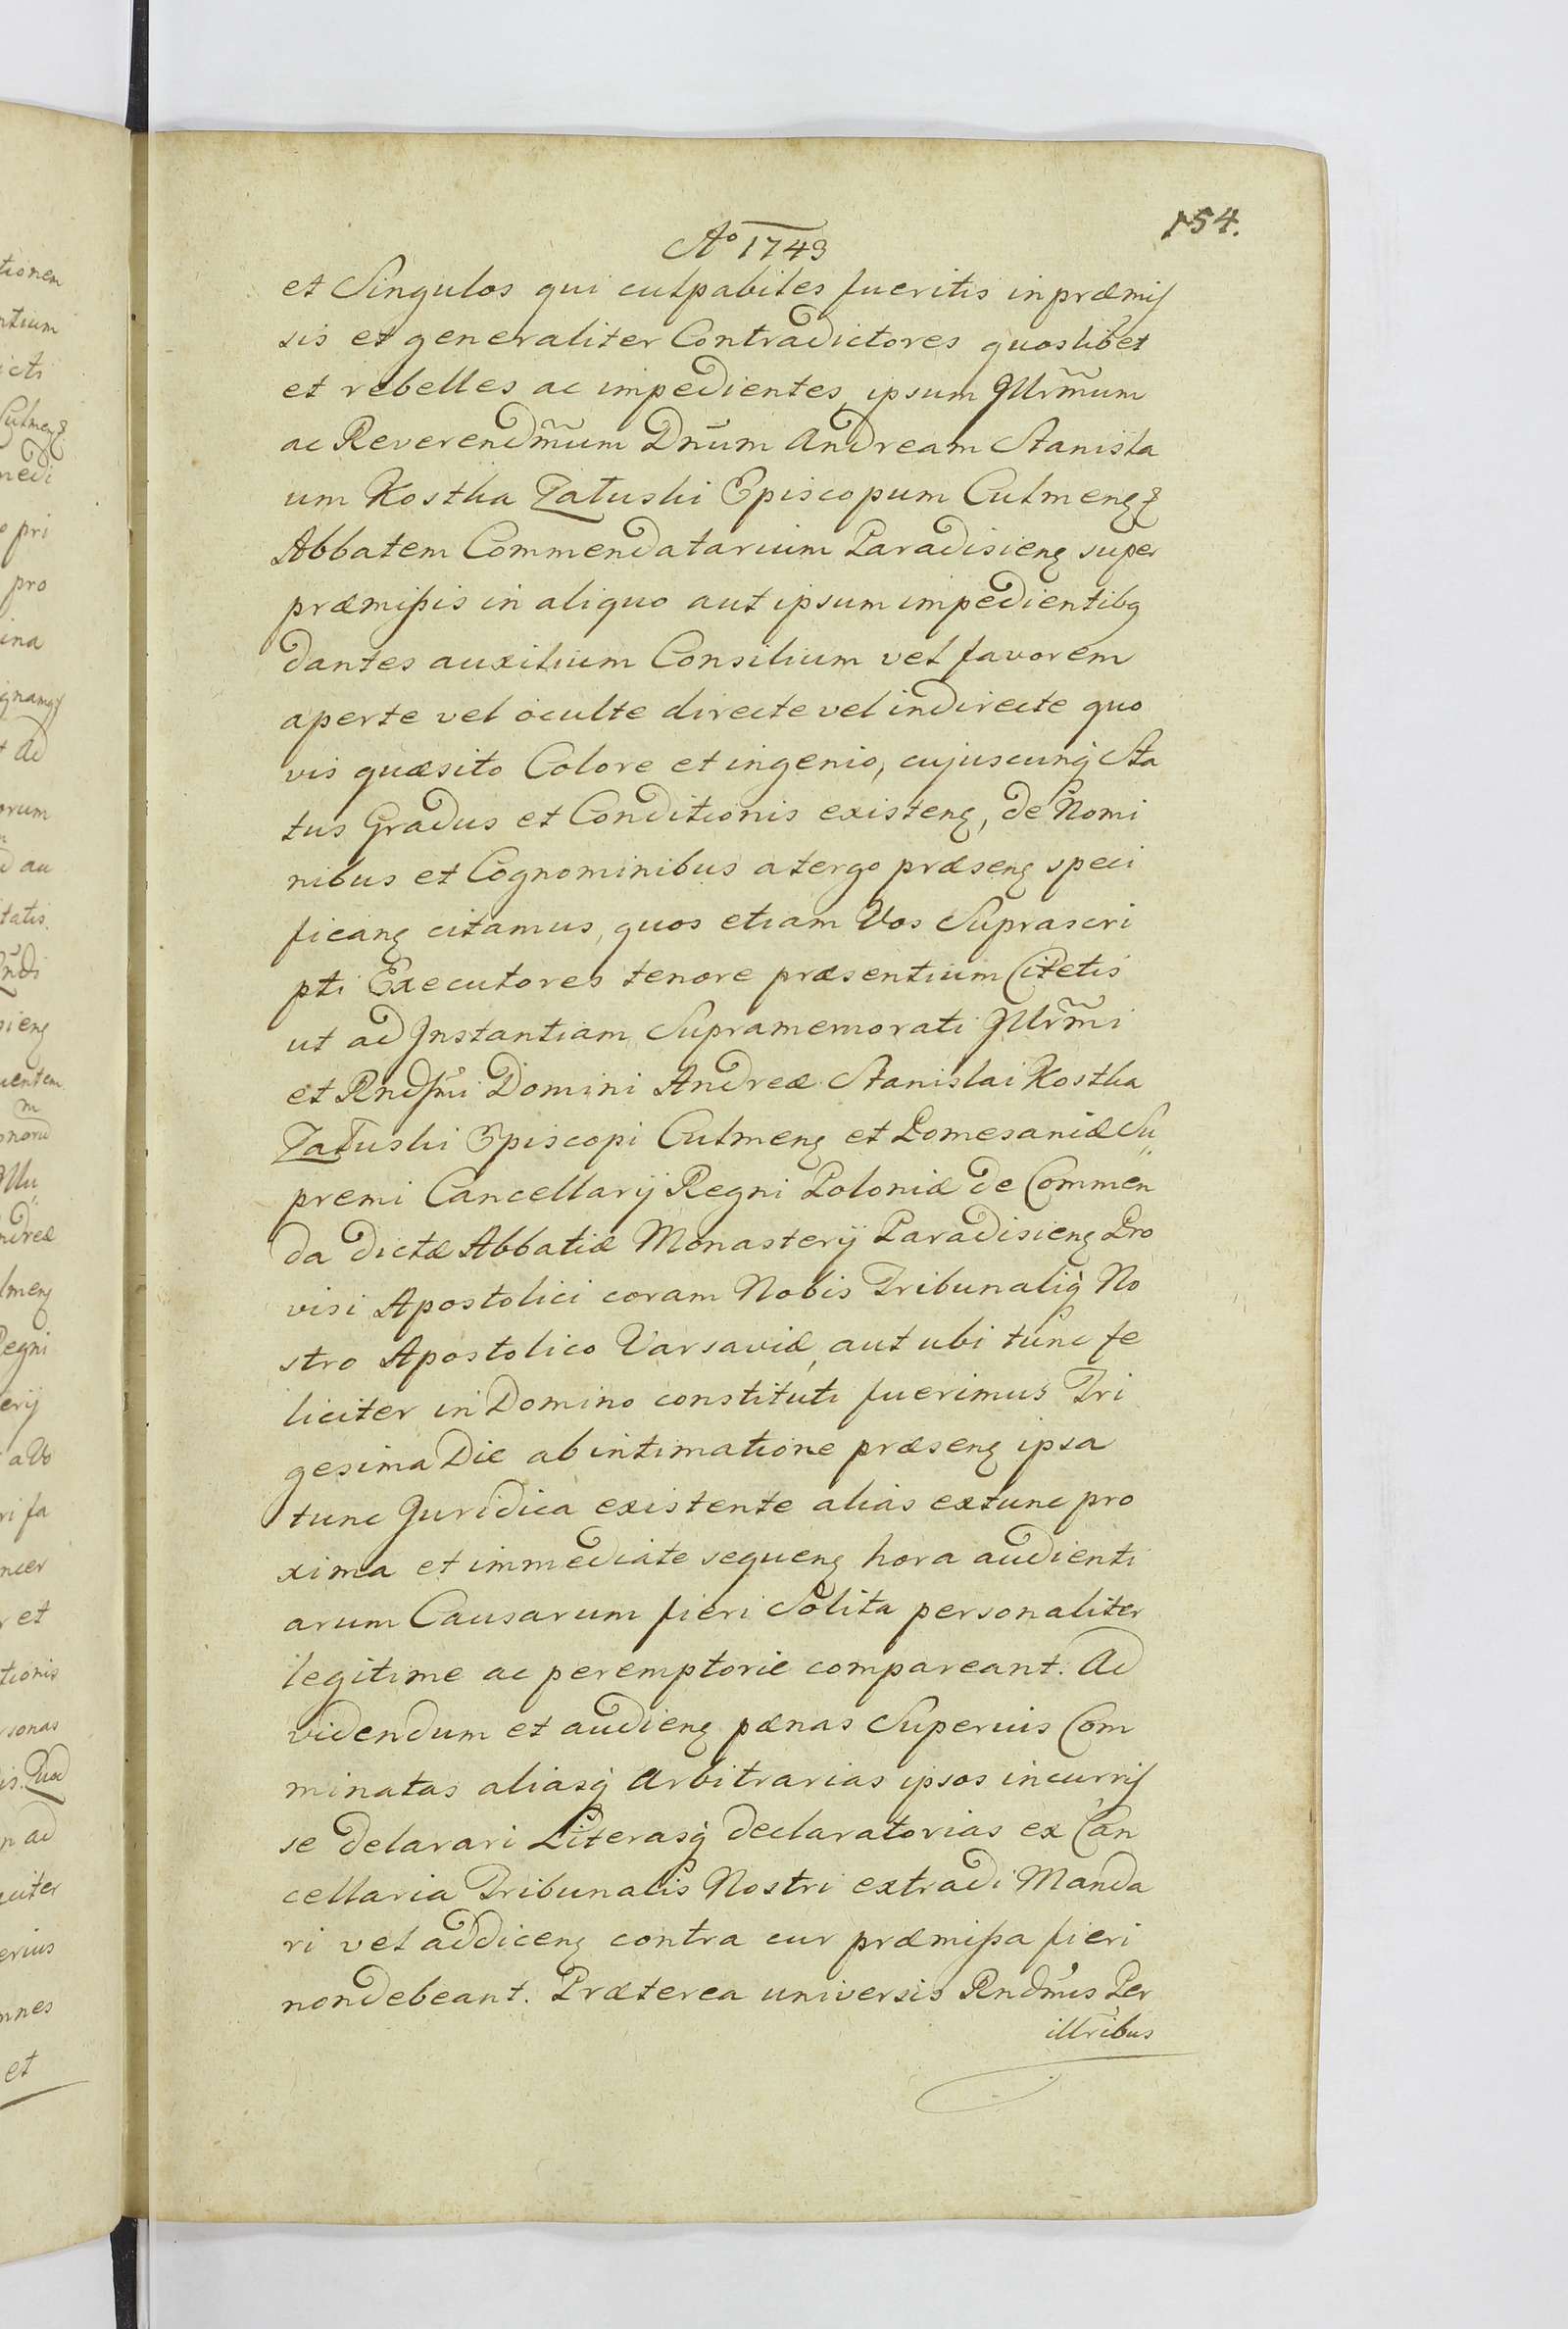 154.
Aº 1743
et Singulos qui culpabiles fueritis in præmis
sis et generaliter Contradictores quoslibet
et rebelles ac impedientes, ipsum Illr̃m̃um
ac Reverendm̃um Dnum Andream Stanisla
um Kostka Załuski Episcopum Culmenȝ &
Abbatem Commendatarium Paradisienȝ super
præmißis in aliquo aut ipsum impedientibȝ
dantes auxilium Consilium vel favorem
aperte vel oculte directe vel indirecte quo
vis quæsito Colore et ingenio, cujuscunq̀ Sta
tus Gradus et Conditionis existenȝ, de Nomi
nibus et Cognominibus a tergo præsenȝ speci
ficanȝ citamus, quos etiam Vos Suprascri
pti Executores tenore præsentium Citetis
ut ad Instantiam Supramemorati Illr̃m̃i
et Rndſmi Domini Andreæ Stanislai Kostka
Załuski Episcopi Culmenȝ et Pomesaniæ Su„
premi Cancellarij Regni Poloniæ de Commen
da dictæ Abbatiæ Monasterij Paradisienȝ Pro
visi Apostolici coram Nobis Tribunaliq̀ No
stro Apostolico Varsaviæ, aut ubi tunc fe
liciter in Domino constituti fuerimus Tri
gesima Die ab intimatione præsenȝ ipsa
tunc Juridica existente alias extunc pro
xima et immediate sequenȝ hora audienti
arum Causarum fieri Solita personaliter
legitime ac peremptorie compareant. Ad
videndum et audienȝ pænas Superius Com
minatas aliasq̀ Arbitrarias ipsos incurris
se delarari Literasq̀ declaratorias ex Can
cellaria Tribunalis Nostri extradi Manda
ri vel addicenȝ contra cur præmißa fieri
non debeant. Præterea universis Rndm̃is Per
illr̃ibus